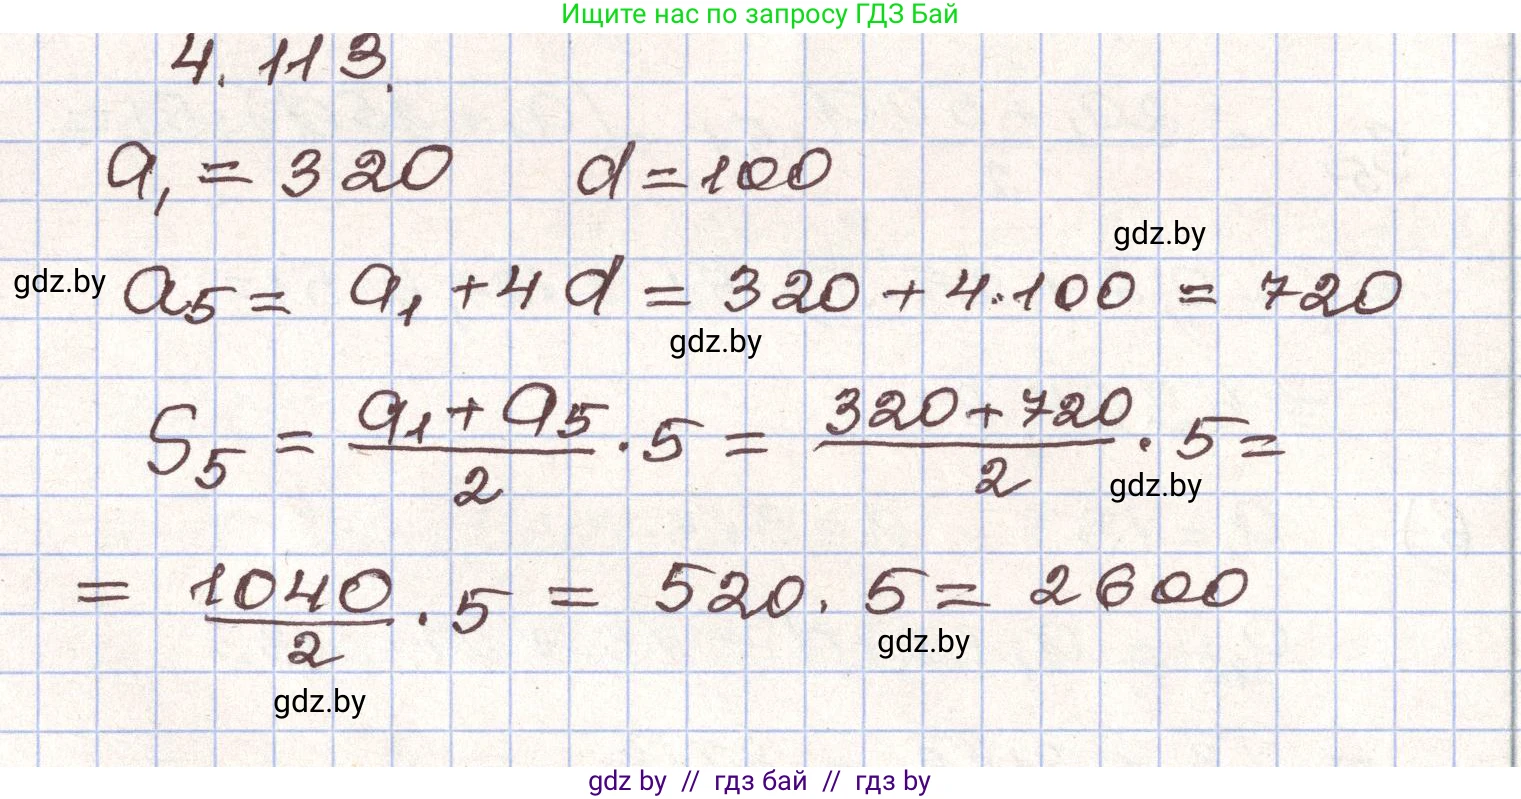 Ищите нас по запросу ГДЗ Бай
4.113.
a₁ = 320 d = 100
gdz.by
gdz.by a₅ = a₁ + 4d = 320 + 4·100 = 720
gdz.by
S₅ = (a₁ + a₅)/2 · 5 = (320 + 720)/2 · 5 =
gdz.by
= 1040/2 · 5 = 520 · 5 = 2600
gdz.by
gdz.by
gdz by // гдз бай // гдз by